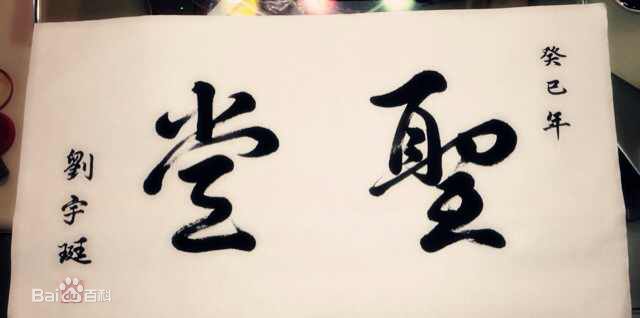 癸巳年
聖堂
劉宇珽
Bai百科